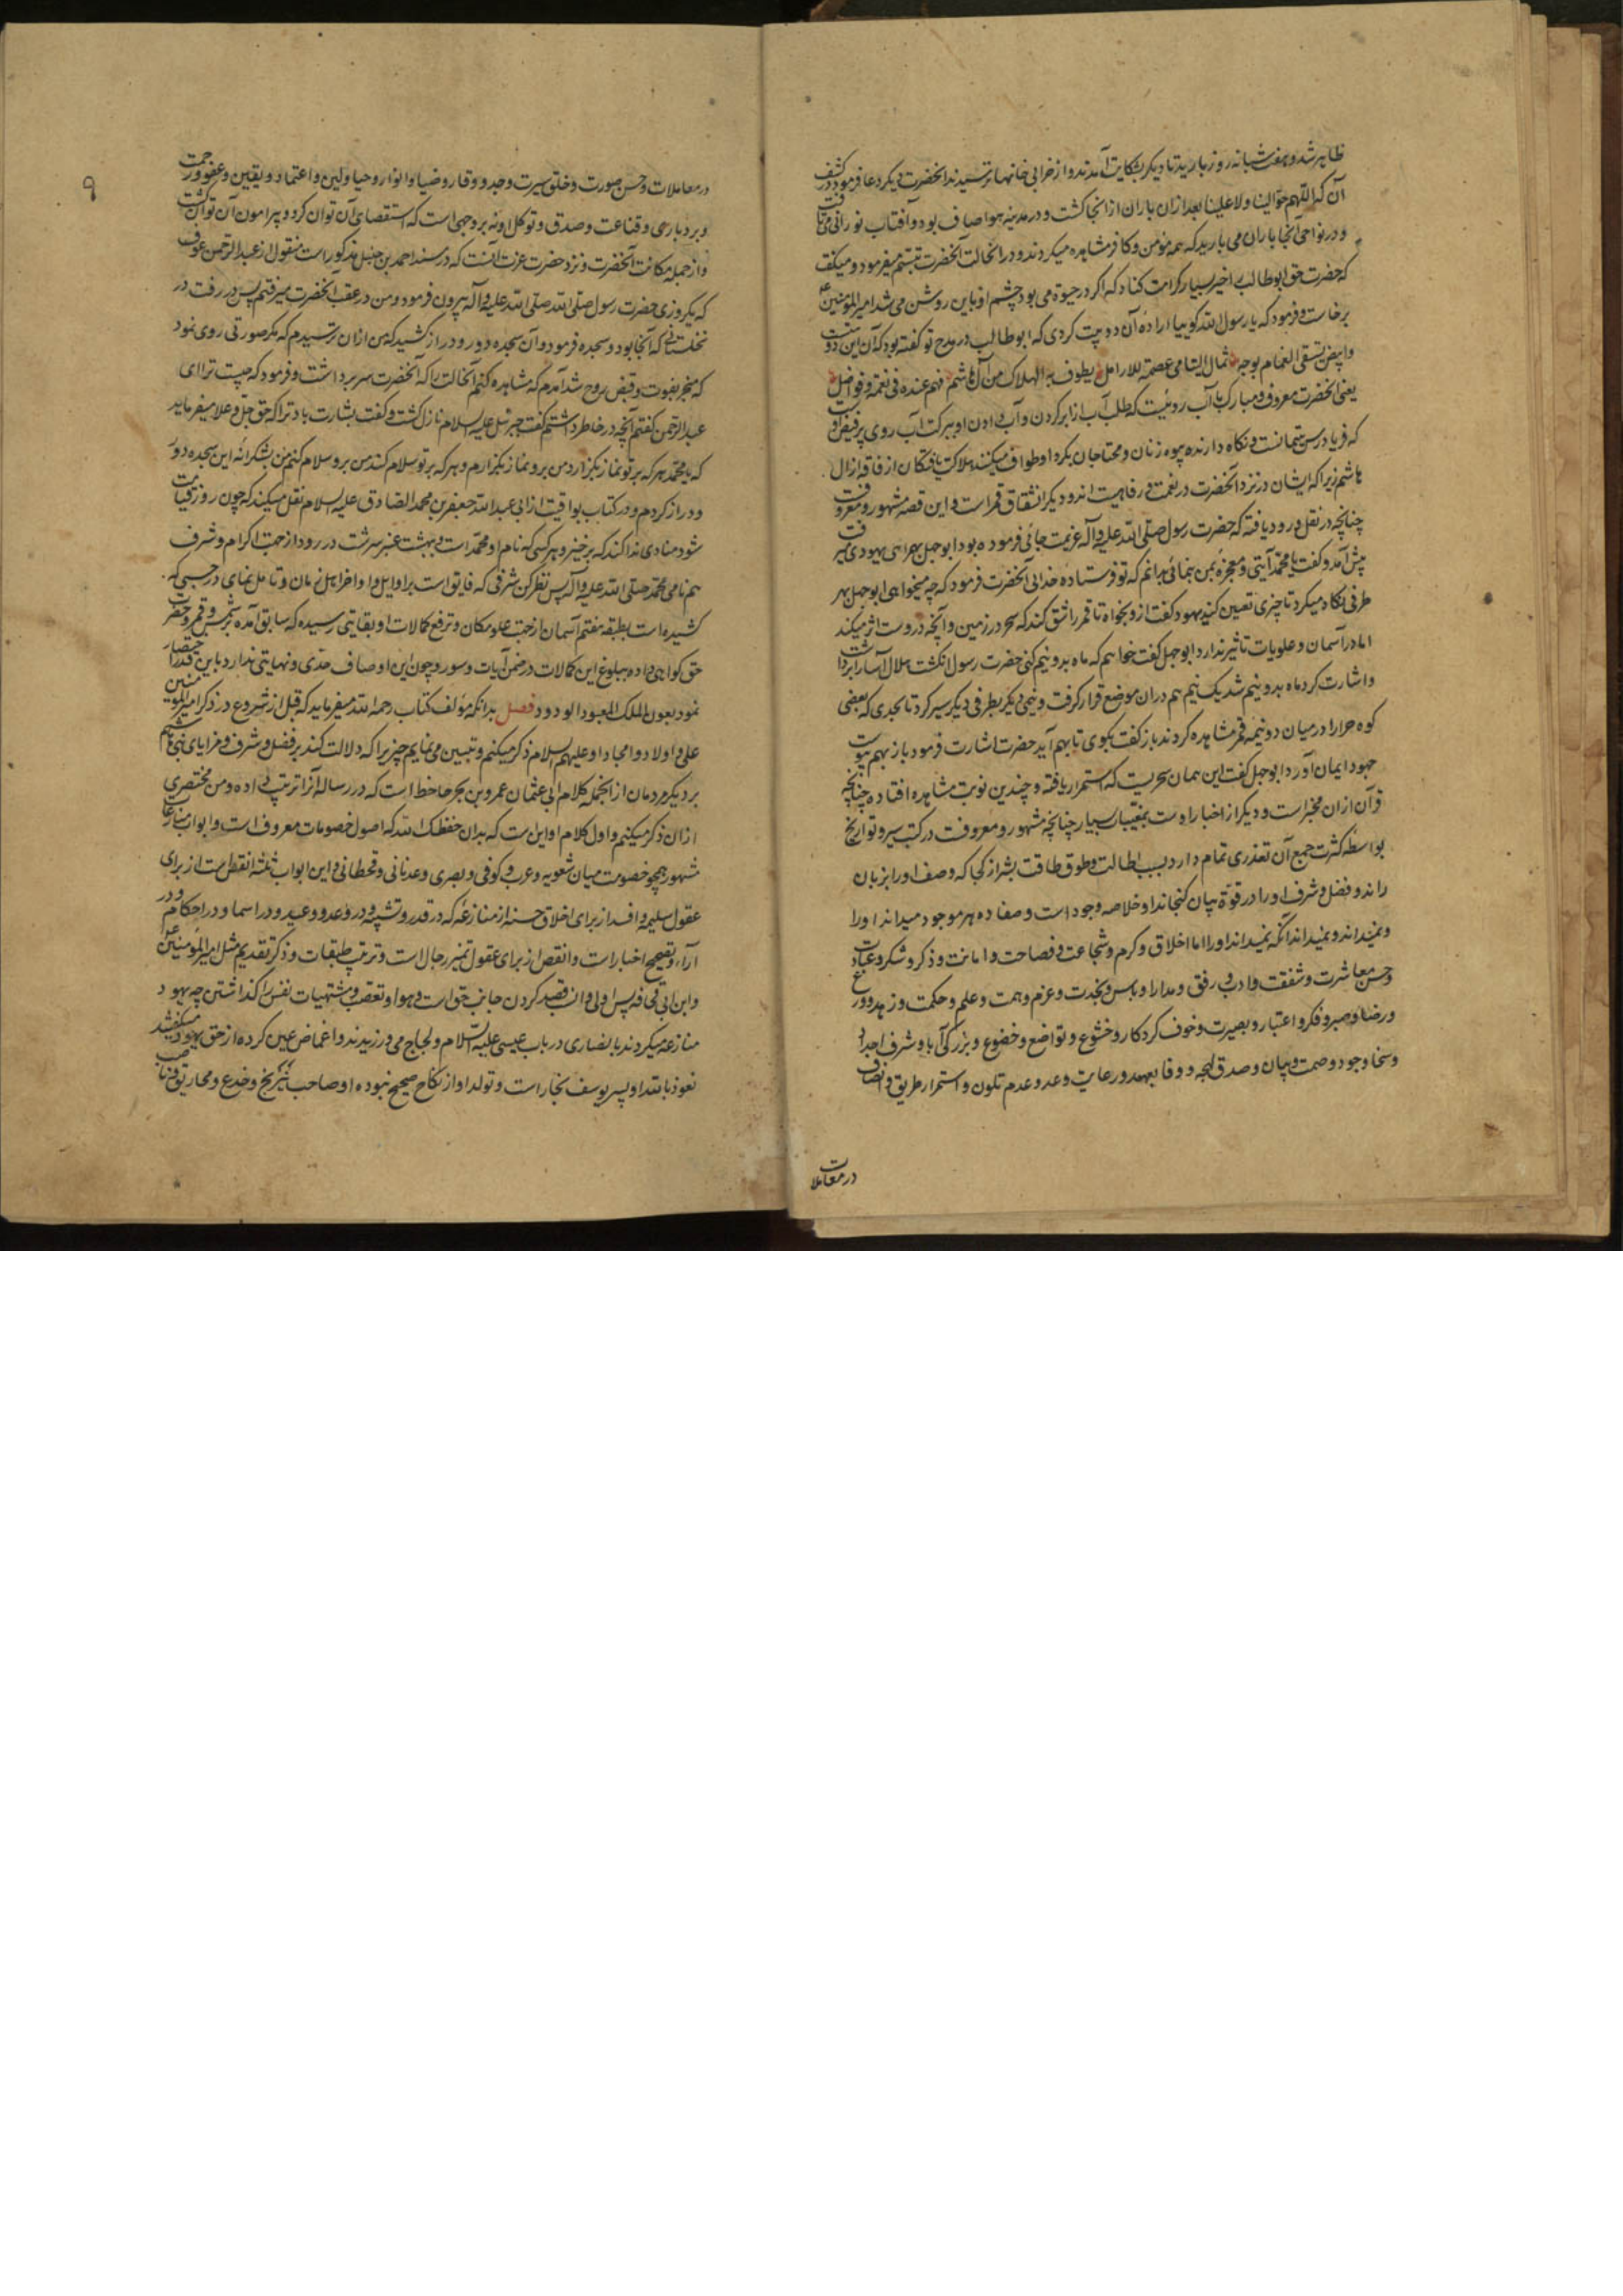 ظاهر شد و هفت شبانه روز بارید تا دیگر بشکایت آمدند و از خرابی خانها ترسیدند آنحضرت دیگر دعا فرمود در کشف
آن که اللهم حوالینا ولا علینا بعد ازان باران از انجا کشت و در مدینه هوا صاف بود و آفتاب نورانی می تافت
و در نواحی آنجا باران می بارید که همه مؤمن و کافر مشاهده میکردند و در انحالت آنحضرت تبسم میفرمود و میکفت
که حضرت حق ابوطالب را خیر بسیار کرامت کناد که اکر در حیوة می بود چشم او باین روشن می شد امیر المؤمنین ع
برخاست و فرمود که یا رسول الله کوییا اراده آن دو بیت کردی که ابوطالب در مدح تو کفته بود که آن این دو بیتست
وابیض یستقی الغمام بوجهه ثمال الیتامی عصمة للارامل یطوف به الهلاک من آل هاشم فهم عنده فی نعمة و فواضل
یعنی آنحضرت معروف و مبارک با آب روئیست که طلب آب از ابر کردن و آب دادن او ببرکت آب روی پر فیض اوست
که فریاد رس یتیمانست و نکاه دارنده بیوه زنان و محتاجان بکرد او طواف میکنند هلاکت یافتکان از فاقه از آل
هاشم زیرا که ایشان در نزد آنحضرت در نعمت و رفاهیت اند و دیکر انشقاق قمر است و این قصه مشهور و معروفست
چنانچه در نقل ورود یافته که حضرت رسول صلی الله علیه و آله عزیمت جائی فرموده بود ابوجهل بهمراهی یهودی میرفت
پیش آمد و کفت یا محمد آیتی و معجزه بمن بنمائی بدانم که تو فرستاده خدایی آنحضرت فرمود که چه میخواهی ابوجهل بهر
طرفی نکاه میکرد تا چیزی تعیین کند یهود کفت ازو بخواه تا قمر را شق کند که سحر در زمین و آنچه دروست اثر میکند
اما در آسمان و علویات تاثیر ندارد ابوجهل کفت خواهم که ماه بدو نیم کنی حضرت رسول انکشت هلال آسا را برداشت
و اشارت کرد ماه بدو نیم شد یک نیم هم دران موضع قرار کرفت و نیمی دیکر بطرفی دیکر سیر کرد تا بحدی که بعضی
کوه حرا را در میان دو نیمه قمر مشاهده کردند باز کفت بکوی تا بهم آید حضرت اشارت فرمود باز بهم پیوست
جهود ایمان آورد ابوجهل کفت این همان سحریست که استمرار یافته و چندین نوبت مشاهده افتاده چنانچه
قرآن ازان مخبر است و دیکر از اخبار اوست بمغیبات بسیار چنانچه مشهور و معروفست در کتب سیر و تواریخ
بواسطه کثرت جمع آن تعذری تمام دارد بسبب اطالت و طوق طاقت بشر از کجا که وصف او را بزبان
راند و فضل و شرف او را در قوة بیان کنجاند او خلاصه وجود است و مفاده هر موجود میداند او را
و نمیداند و نمیداند آنکه نمیداند او را اما اخلاق و کرم و شجاعت و فصاحت و امانت و ذکر و شکر و عبادت
و حسن معاشرت و شفقت و ادب و رفق و مدارا و باس و نجدت و عزم و همت و علم و حکمت و زهد و ورع
و رضا و صبر و فکر و اعتبار و بصیرت و خوف کردکار و خشوع و تواضع و خضوع و بزرکی آبا و شرف اجداد
و سخا و جود و صمت و بیان و صدق لهجه و وفا بعهد و رعایت وعد و عدم تلون و استمرار طریق و انصاف
در معاملات
٩
در معاملات و حسن صورت و خلق سیرت و جد و وقار و ضیا و انوار و حیا و لین و اعتماد و یقین و عفو و رحمت
و بردباری و قناعت و صدق و توکل او نه بر وجهی است که استقصای آن توان کرد و پیرامون آن توان کشت
و از جمله مکانت آنحضرت و نزد حضرت عزت آنست که در مسند احمد بن حنبل مذکور است منقول از عبد الرحمن عوف
که یکروزی حضرت رسول صلی الله صلی الله علیه و آله بیرون فرمود و من در عقب آنحضرت میرفتم پس در رفت در
نخلستانی که آنجا بود و سجده فرمود و آن سجده دور و دراز کشید که من ازان ترسیدم که مکر صورتی روی نمود
که منجر بفوت و قبض روح شد آمدم که مشاهده کنم آنحالت را که آنحضرت سر برداشت و فرمود که چیست ترا ای
عبد الرحمن کفتم آنچه در خاطر داشتم کفت جبرئیل علیه السلام نازل کشت و کفت بشارت باد ترا که حق جل و علا میفرماید
که یا محمد هر که بر تو نماز بکزارد من برو نماز بکزارم و هر که بر تو سلام کند من برو سلام کنم من بشکرانه این سجده دور
و دراز کردم و در کتاب یواقیت از ابی عبد الله جعفر بن محمد الصادق علیه السلام نقل میکند که چون روز قیامت
شود منادی ندا کند که برخیزد هر کسی که نام او محمد است و ببهشت عنبر سرشت در رود از جهت اکرام و شرف
هم نامی محمد صلی الله علیه و آله پس نظر کن شرفی که فایق است بر اوایل و اواخر اهل زمان و تامل نمای در حسبی که
کشیده است بطبقه هفتم آسمان از جهت علو مکان و ترفع کمالات او بغایتی رسیده که سابق آمده بر شمس و قمر و حضرت
حق کواهی داده ببلوغ این کمالات در ضمن آیات و سور و چون این اوصاف حدی و نهایتی ندارد باین قدر اختصار
نمود بعون الملک المعبود الودود فصل بدانکه مؤلف کتاب رحمه الله میفرماید که قبل از شروع در ذکر امیر المؤمنین
علی و اولاد و امجاد او علیهم السلام ذکر میکنم و تبیین می نمایم چیزیرا که دلالت کند بر فضل و شرف و مزایای بنی هاشم
بر دیکر مردمان از انجمله کلام ابی عثمان عمرو بن بحر جاحظ است که در رساله آنرا ترتیب داده و من مختصری
ازان ذکر میکنم و اول کلام او این است که بدان حفظک الله که اصول خصومات معروف است و ابواب منازعات
مشهور همچو خصومت میان شعوبیه و عرب و کوفی و بصری و عدنانی و قحطانی و این ابواب ثلثه انقض است از برای
عقول سلیمه و افسد از برای اخلاق حسنه از منازعه که در قدر و تشبیه و در وعد و وعید و در اسما و در احکام و در
آراء و تصحیح اخبار است و انقص از برای عقول تمیز رجال است و ترتیب طبقات و ذکر تقدیم مثل امیر المؤمنین ع
و ابن ابی قحافه پس اولی و انسب قصد کردن جانب حق است و هوا و تعصب و مشتهیات نفس را کذاشتن چه یهود
منازعه میکردند با نصاری در باب عیسی علیه السلام و لجاج می ورزیدند و اغماض عین کرده از حق یهود میکفتند
نعوذ بالله او پسر یوسف نجار است و تولد او از نکاح صحیح نبوده او صاحب نیرنج و خدع و مخاریق و ناصب